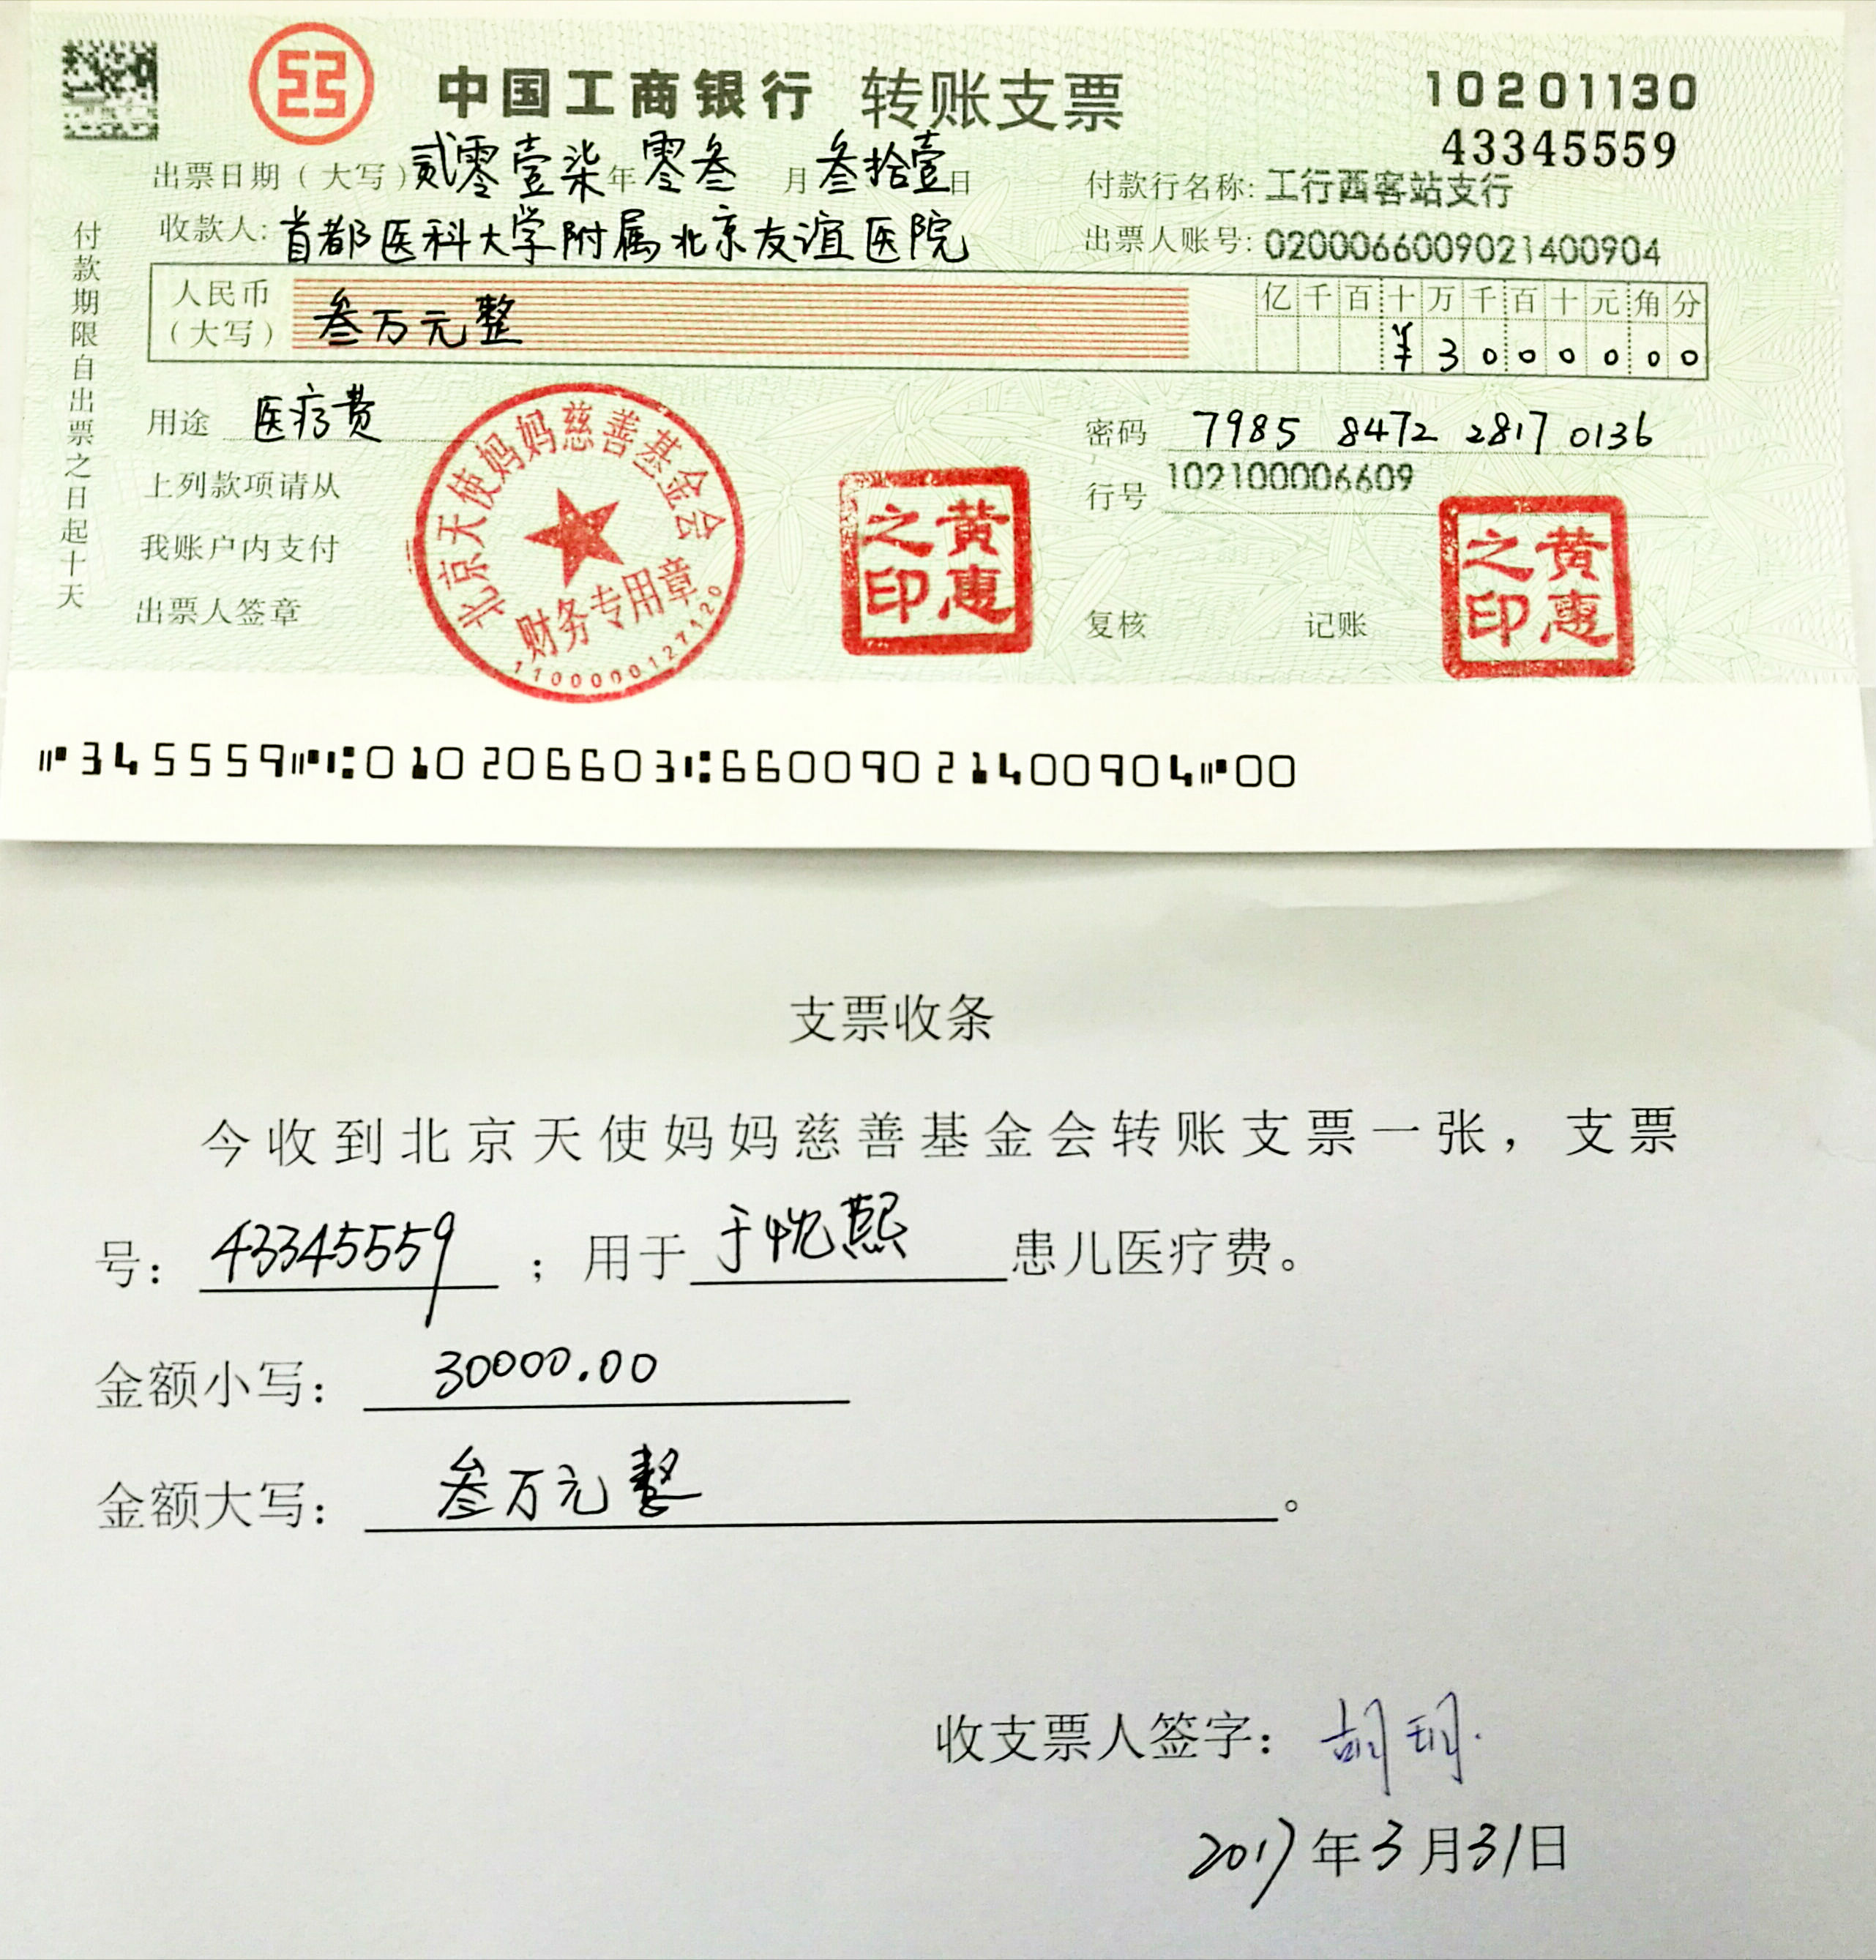 中国工商银行 转账支票
10201130
43345559
出票日期（大写）贰零壹柒年零叁月叁拾壹日
付款行名称：工行西客站支行
收款人：首都医科大学附属北京友谊医院
出票人账号：0200066009021400904
付款期限自出票之日起十天
人民币（大写）叁万元整
亿千百十万千百十元角分
¥3000000
用途 医疗费
密码 7985 8472 2817 0136
行号 102100006609
上列款项请从
我账户内支付
出票人签章
北京天使妈妈慈善基金会
财务专用章
1100000127120
黄惠之印
复核 记账
黄惠之印
⑈345559⑈⑆010206603⑆6600902 1400904⑈00
支票收条
今收到北京天使妈妈慈善基金会转账支票一张，支票
号：43345559；用于于忱熙患儿医疗费。
金额小写：30000.00
金额大写：叁万元整。
收支票人签字：胡
2017年3月31日